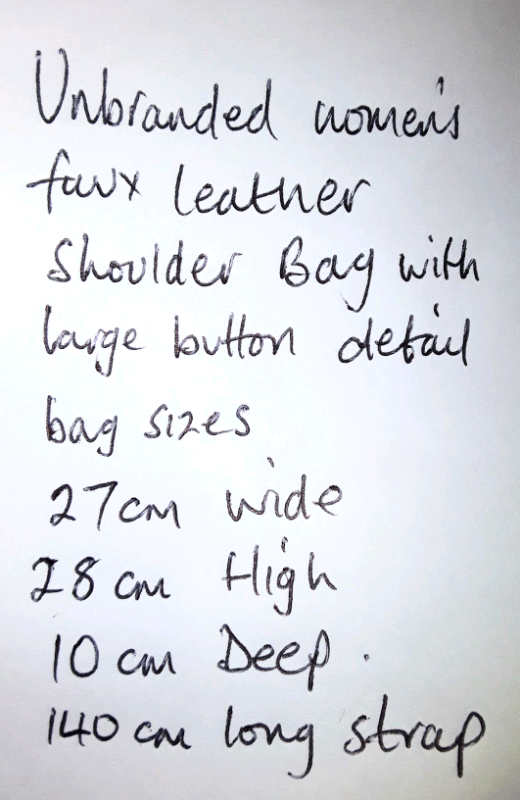 Unbranded women's
faux leather
Shoulder Bag with
large button detail
bag sizes
27cm wide
28 cm High
10 cm Deep.
140 cm long strap